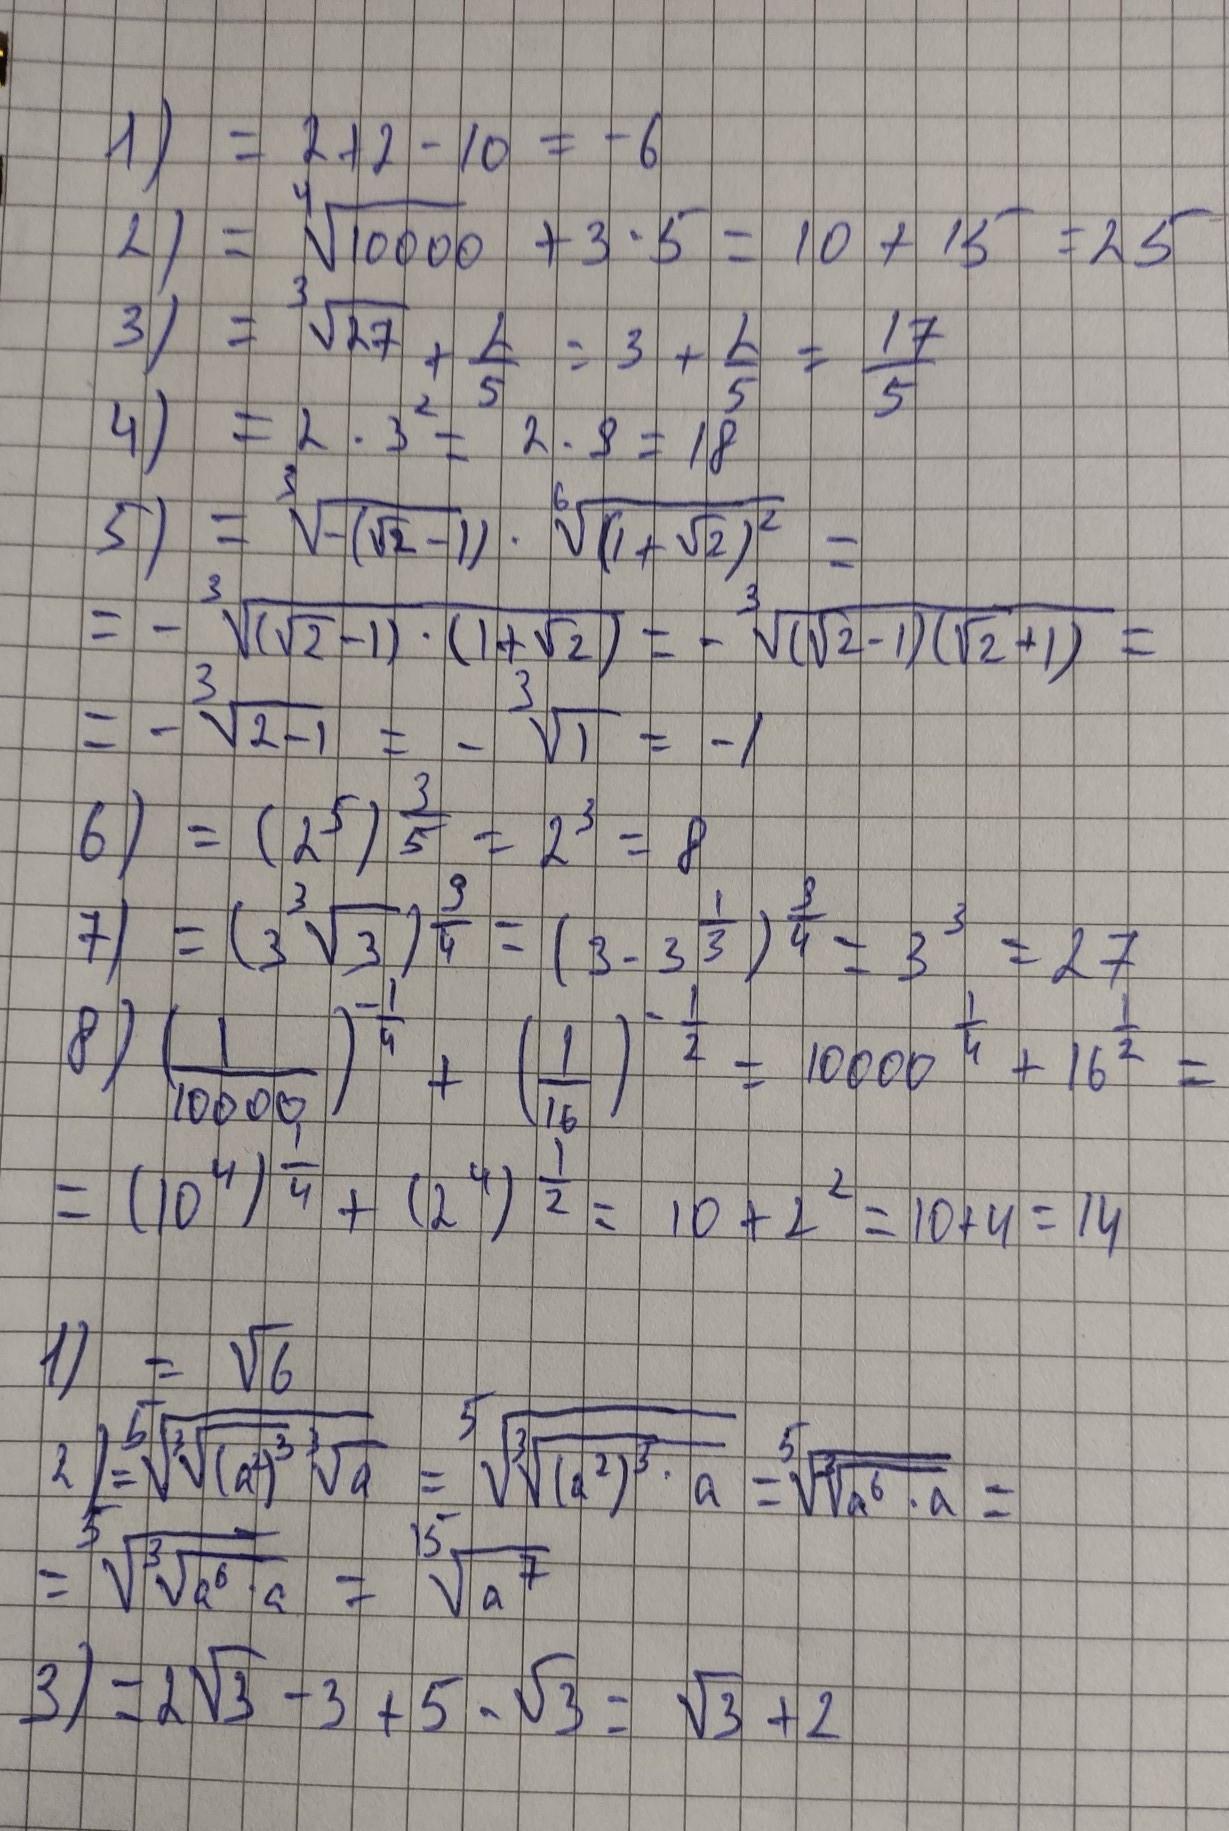 1) = 2+2-10 = -6
2) = ⁴√10000 + 3·5 = 10 + 15 = 25
3) = ³√27 + 2/5 = 3 + 2/5 = 17/5
4) = 2 · 3² = 2 · 9 = 18
5) = ³√-(√2-1) · ⁶√(1+√2)² =
= - ³√(√2-1)·(1+√2) = - ³√(√2-1)(√2+1) =
= - ³√2-1 = - ³√1 = -1
6) = (2⁵)^3/5 = 2³ = 8
7) = (3 ³√3)^9/4 = (3 - 3^1/3)^9/4 = 3³ = 27
8) (1/10000)^-1/4 + (1/16)^-1/2 = 10000^1/4 + 16^1/2 =
= (10⁴)^1/4 + (2⁴)^1/2 = 10 + 2² = 10+4 = 14
1) = √6
2) = ⁵√³√(a²)³ ³√a = ⁵√³√(a²)³ · a = ⁵√³√a⁶ · a =
= ⁵√³√a⁶ · a = ¹⁵√a⁷
3) = 2√3 - 3 + 5 - √3 = √3 + 2